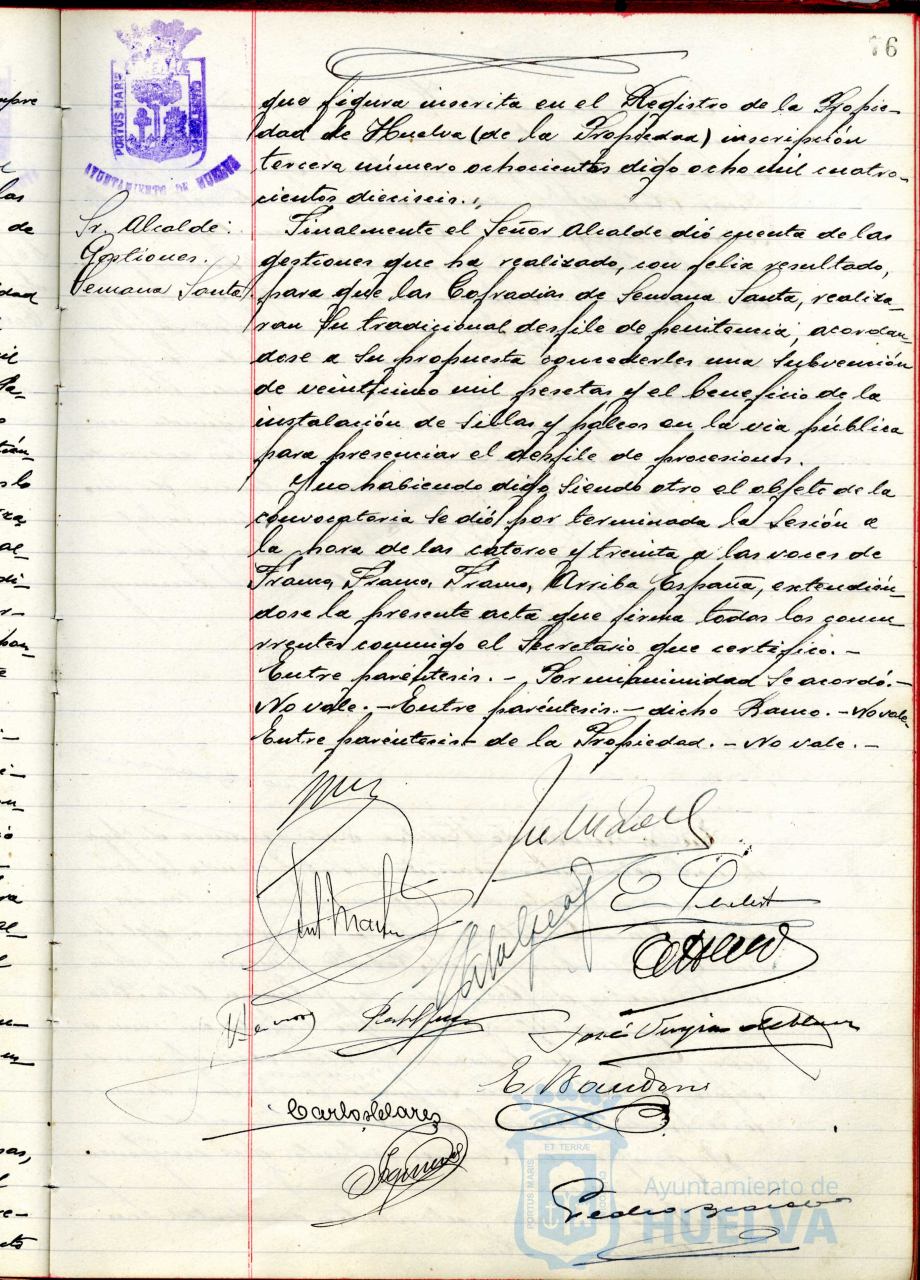 76
PORTUS MARIS
AYUNTAMIENTO DE HUELVA
que figura inscrita en el Registro de la Propie-
dad de Huelva (de la Propiedad) inscripción
tercera número ochocientos digo ocho mil cuatro-
cientos dieciseis.,
Sr. Alcalde:
Gestiones.
Semana Santa
Finalmente el Señor Alcalde dió cuenta de las
gestiones que ha realizado, con feliz resultado,
para que las Cofradias de Semana Santa, realiza-
ran su tradicional desfile de penitencia, acordan-
dose a su propuesta concederles una subvención
de veinticinco mil pesetas y el beneficio de la
instalación de sillas y palcos en la via pública
para presenciar el desfile de procesiones.
Y no habiendo digo siendo otro el objeto de la
convocatoria se dió por terminada la sesión a
la hora de las catorce y treinta a las voces de
Franco, Franco, Franco, Arriba España, extendién-
dose la presente acta que firma todos los concu-
rrentes conmigo el Secretario que certifico.-
Entre paréntesis.- Por unanimidad se acordó.-
No vale.- Entre paréntesis.- dicho Ramo.- No vale-
Entre paréntesis- de la Propiedad.- No vale.-
José
Carlos
Pedro
ET TERRÆ
PORTUS MARIS
Ayuntamiento de
HUELVA